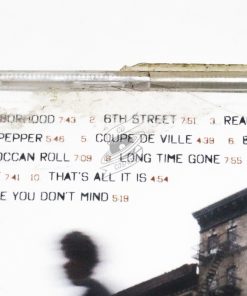 BORHOOD 7:43 2. 6TH STREET 7:51 3. REA
PEPPER 5:46 5. COUPE DE VILLE 4:39 6. B
OCCAN ROLL 7:09 8. LONG TIME GONE 7:55
7:41 10. THAT'S ALL IT IS 4:54
E YOU DON'T MIND 5:19